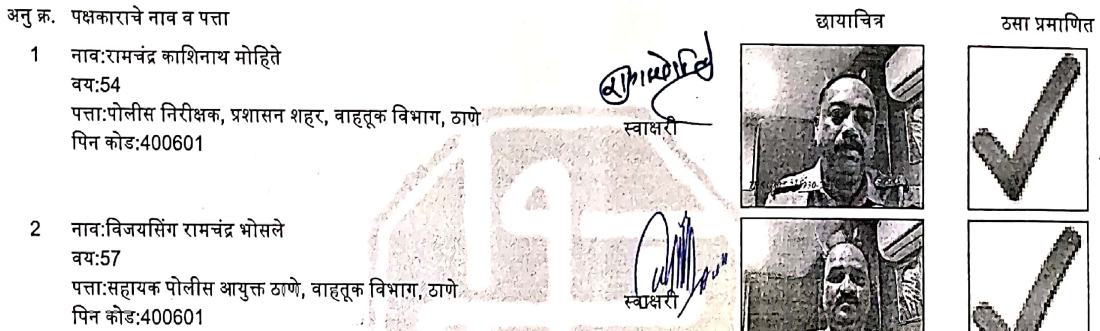 अनु क्र. पक्षकाराचे नाव व पत्ता छायाचित्र ठसा प्रमाणित
1 नाव:रामचंद्र काशिनाथ मोहिते
वय:54
पत्ता:पोलीस निरीक्षक, प्रशासन शहर, वाहतूक विभाग, ठाणे
पिन कोड:400601
स्वाक्षरी
2 नाव:विजयसिंग रामचंद्र भोसले
वय:57
पत्ता:सहायक पोलीस आयुक्त ठाणे, वाहतूक विभाग, ठाणे
पिन कोड:400601
स्वाक्षरी